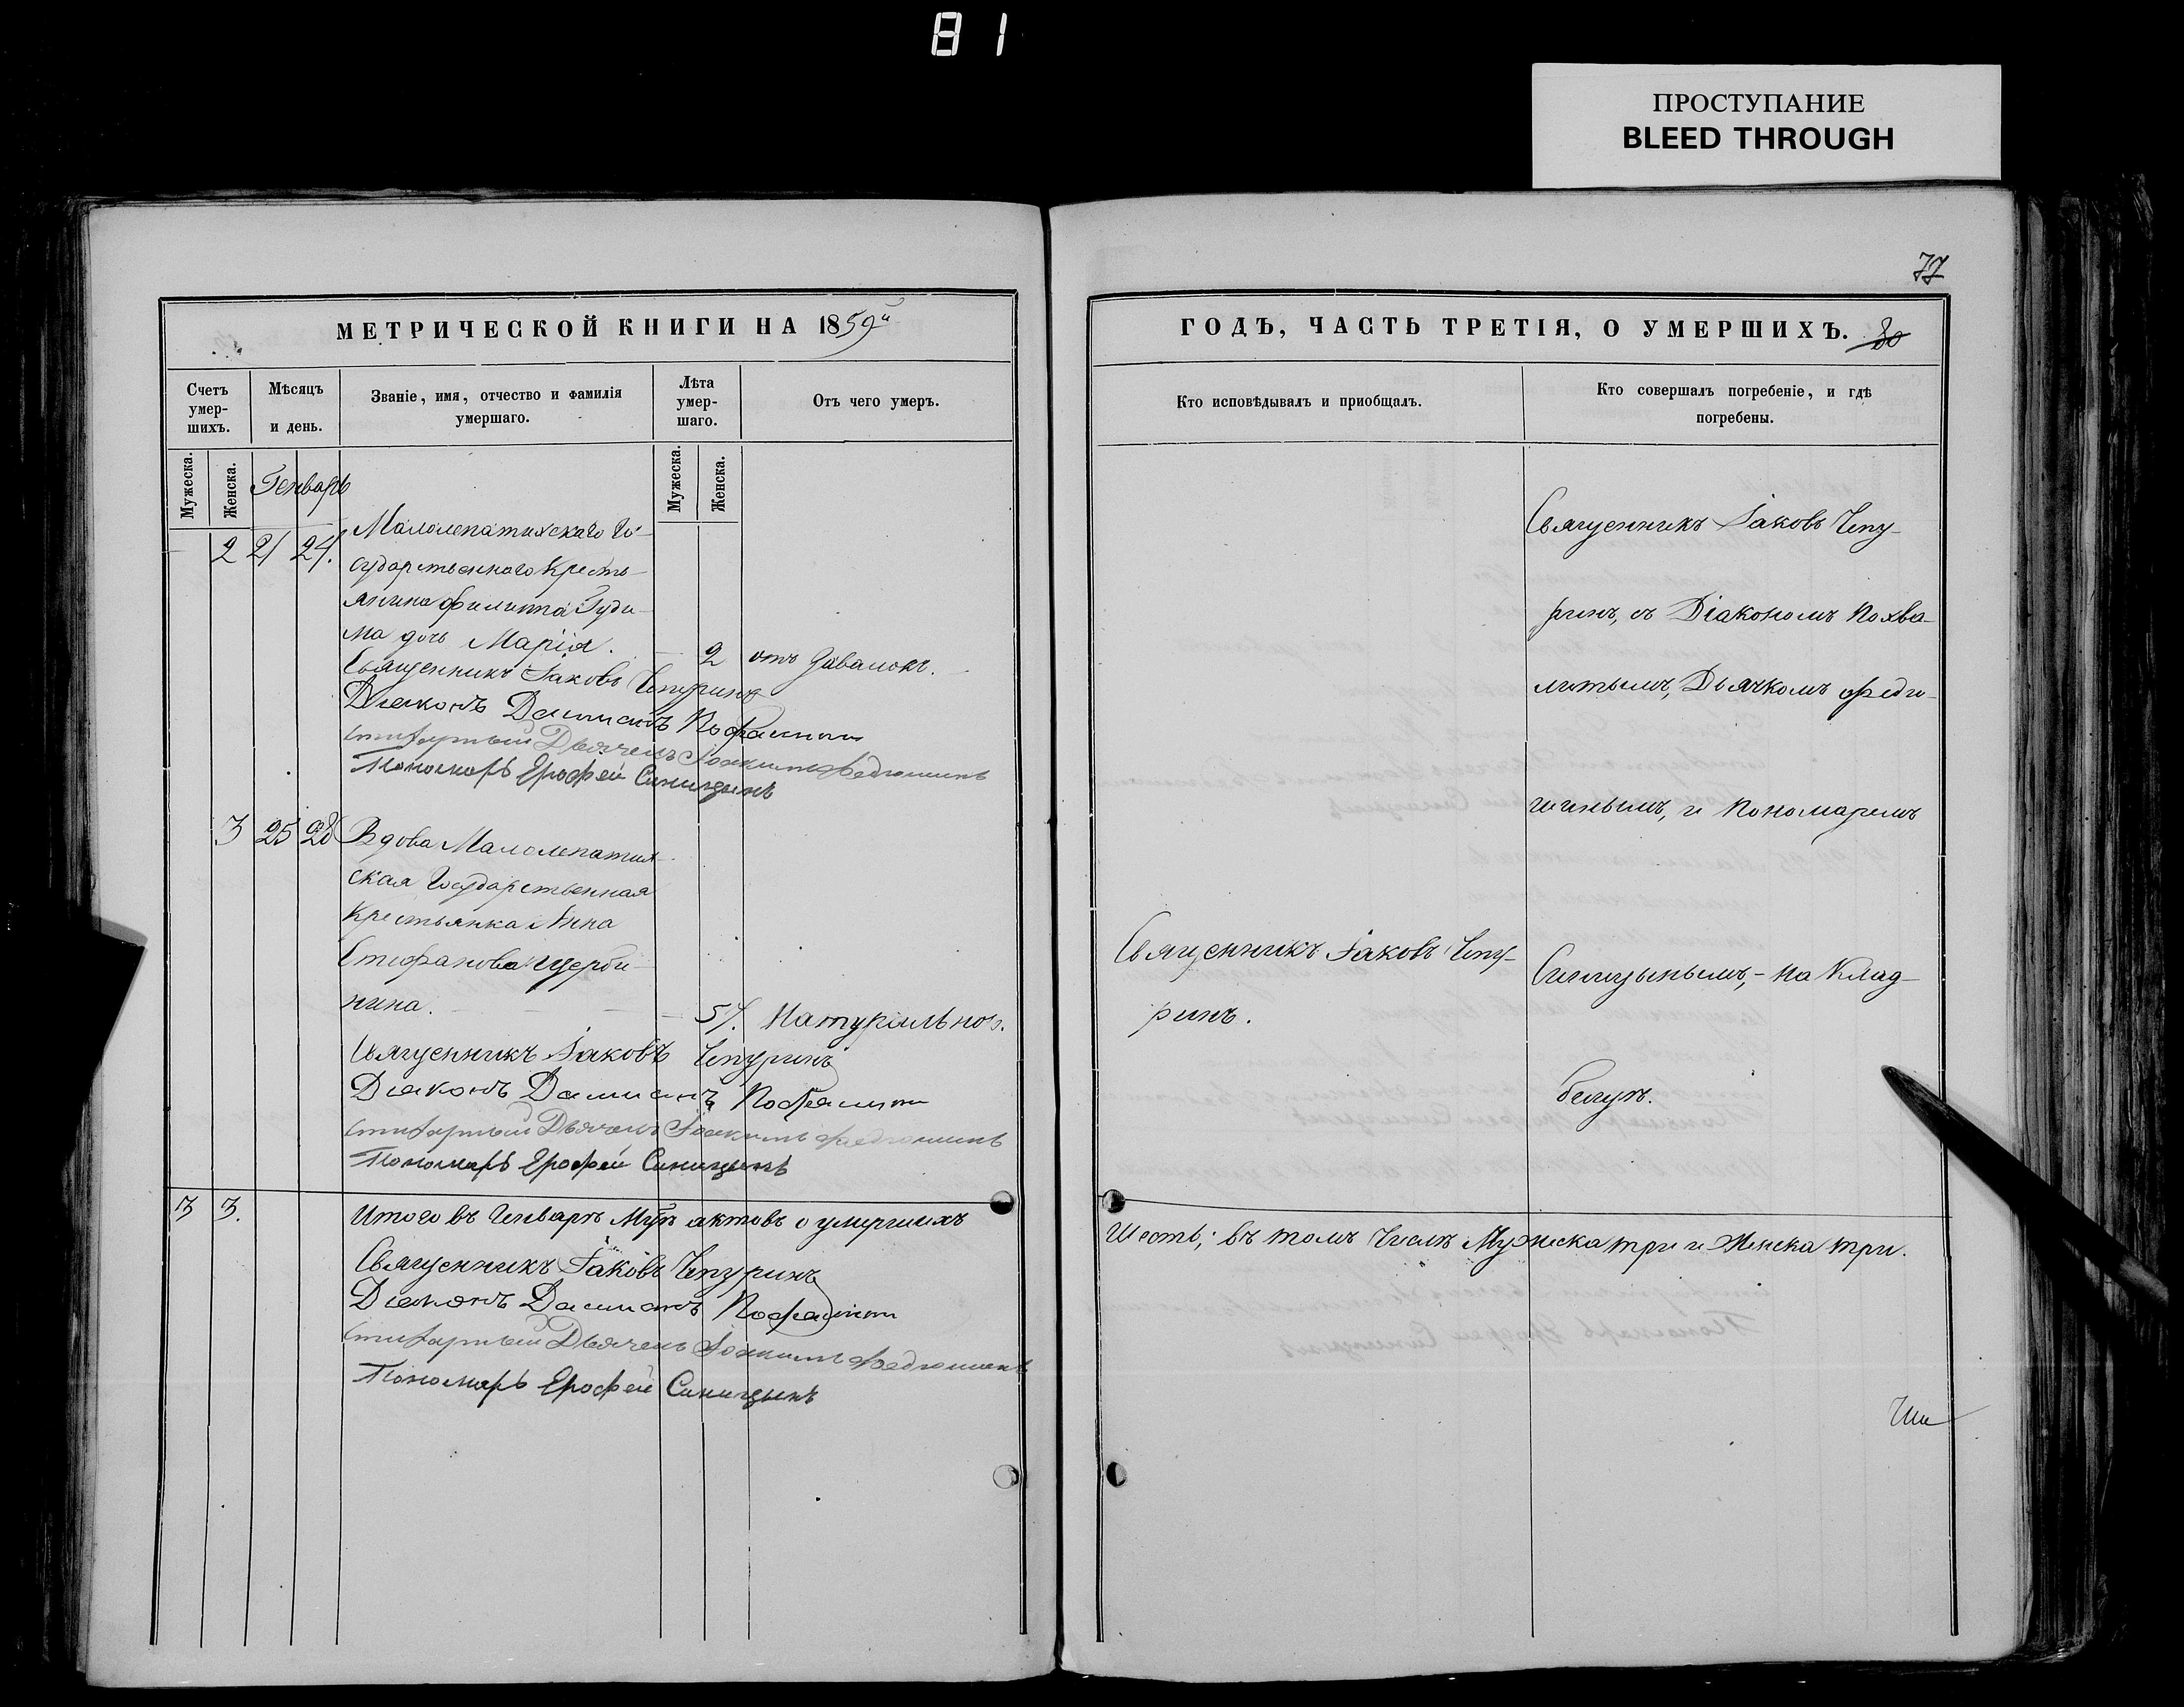 81
ПРОСТУПАНИЕ
BLEED THROUGH
77
МЕТРИЧЕСКОЙ КНИГИ НА 1859й
Счетъ умер-шихъ.
Мѣсяцъ и день.
Званіе, имя, отчество и фамилія умершаго.
Лѣта умер-шаго.
Отъ чего умеръ.
Мужеска.
Женска.
Генварь
Мужеска.
Женска.
2 21 24.
Малолепатихскаго Го-
сударственнаго Кресть-
янина Филиппа Гуди-
ма дочь Марія. 2 отъ давлокъ.
Священникъ Іаковъ Чепуринъ
Діаконъ Даміанъ
Дьячекъ Іоакимъ Федюшинъ
Пономарь Ерофей Синицынъ
3 25 28 Вдова Малолепатих-
ская Государственная
Крестьянка Анна
Стефанова Щерби-
нина. 57. Натурально.
Священникъ Іаковъ Чепуринъ
Діаконъ Даміанъ
Дьячекъ Іоакимъ Федюшинъ
Пономарь Ерофей Синицынъ
3 3. Итого въ Генварѣ Мцѣ актовъ о умершихъ
Священникъ Іаковъ Чепуринъ
Діаконъ Даміанъ
Дьячекъ Іоакимъ Федюшинъ
Пономарь Ерофей Синицынъ
ГОДЪ, ЧАСТЬ ТРЕТІЯ, О УМЕРШИХЪ. 80
Кто исповѣдывалъ и приобщалъ.
Кто совершалъ погребеніе, и гдѣ погребены.
Священникъ Іаковъ Чепу-
ринъ, съ Діакономъ Похва-
литымъ, Дьячкомъ Федю-
шинымъ, и Пономаремъ
Священникъ Іаковъ Чепу-
ринъ.
Синицынымъ, - на Клад-
бищѣ.
Шесть; въ томъ Числѣ Мужеска три и Женска три.